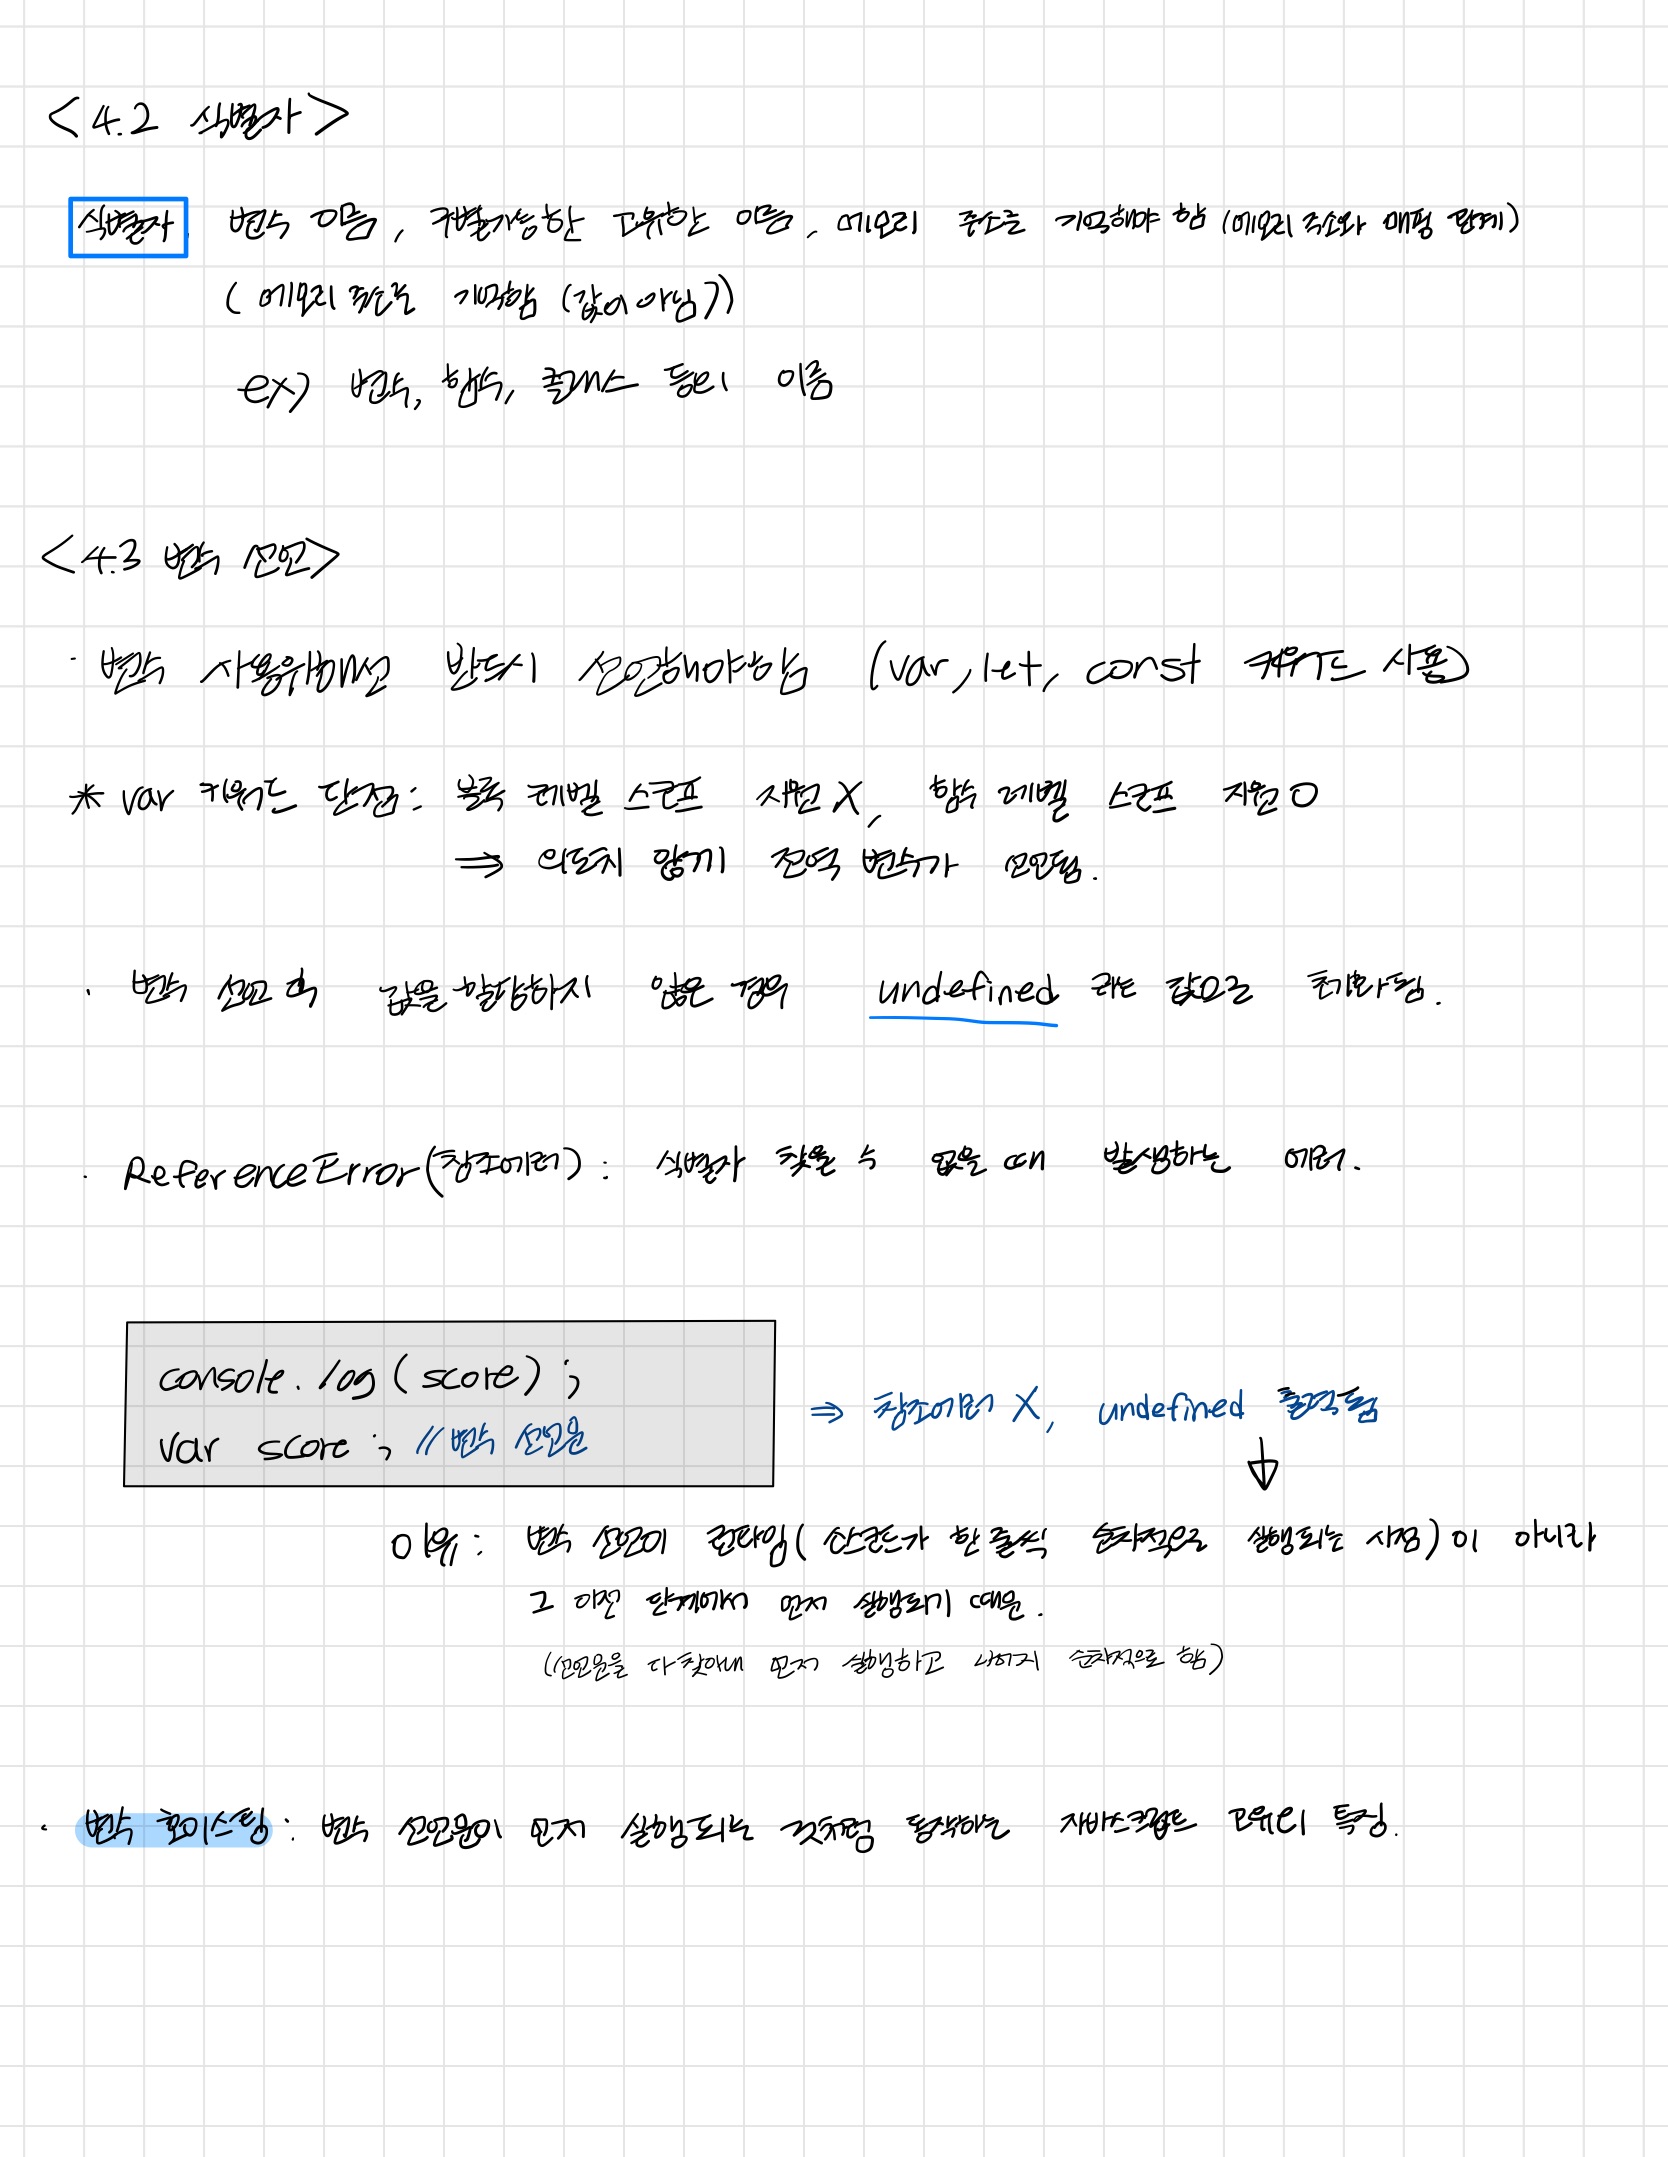 <4.2 식별자>
식별자 변수 이름, 구별가능한 고유한 이름, 메모리 주소를 기억해야 함 (메모리 주소와 매핑 관계)
(메모리 주소를 기억함 (값이 아님))
ex) 변수, 함수, 클래스 등의 이름
<4.3 변수 선언>
· 변수 사용위해선 반드시 선언해야함 (var, let, const 키워드 사용)
* var 키워드 단점: 블록 레벨 스코프 지원 X, 함수 레벨 스코프 지원 O
⇒ 의도치 않게 전역 변수가 선언됨.
· 변수 선언 후 값을 할당하지 않은 경우 undefined 라는 값으로 초기화됨.
· ReferenceError(참조에러): 식별자 찾을 수 없을 때 발생하는 에러.
console.log(score);
var score; //변수 선언문
⇒ 참조에러 X, undefined 출력됨
↓
이유: 변수 선언이 런타임(소스코드가 한 줄씩 순차적으로 실행되는 시점)이 아니라
그 이전 단계에서 먼저 실행되기 때문.
(선언문을 다 찾아내 먼저 실행하고 나머지 순차적으로 함)
· 변수 호이스팅: 변수 선언문이 먼저 실행되는 것처럼 동작하는 자바스크립트 고유의 특징.